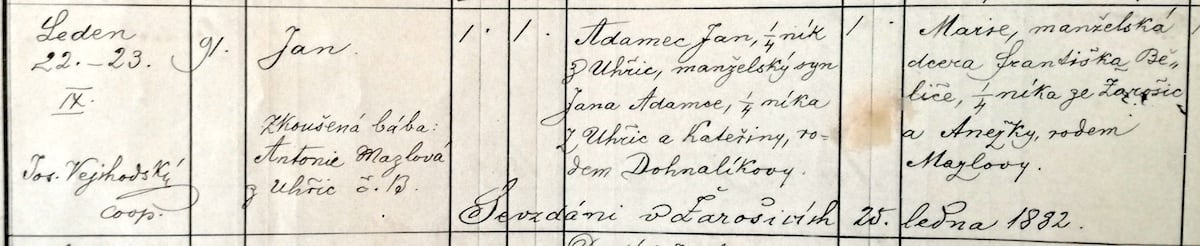 Leden
22.–23.
IX.
Jos. Vejrhodský
coop.
91.
Jan.
Zkoušená bába:
Antonie Mazlová
z Uhřic č. 13.
1. 1.
Adamec Jan, 1/4 ník
z Uhřic, manželský syn
Jana Adamce, 1/4 níka
z Uhřic a Kateřiny, ro-
dem Dohnalíkovy.
1
Marie, manželská
dcera Františka Bě-
liče, 1/4 níka ze Žarošic
a Anežky, rodem
Mazlovy.
Sevzdáni v Žarošicích 25. ledna 1882.